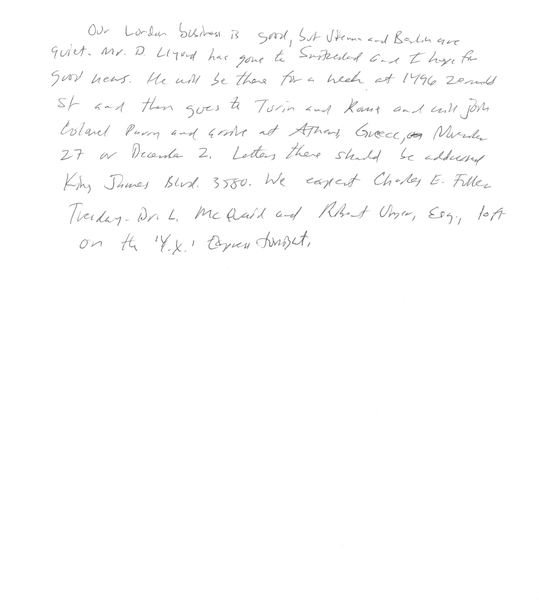 Our London business is good, but Vienna and Berlin are
quiet. Mr. D. Lloyd has gone to Switzerland and I hope for
good news. He will be there for a week at 1496 Zermatt
St and then goes to Turin and Rome and will join
Colonel Parry and arrive at Athens, Greece, November
27 or December 2. Letters there should be addressed
King James Blvd. 3580. We expect Charles E. Fuller
Tuesday. Dr. L. McQuaid and Robert Unger, Esq., left
on the 'Y.X.' Express tonight.